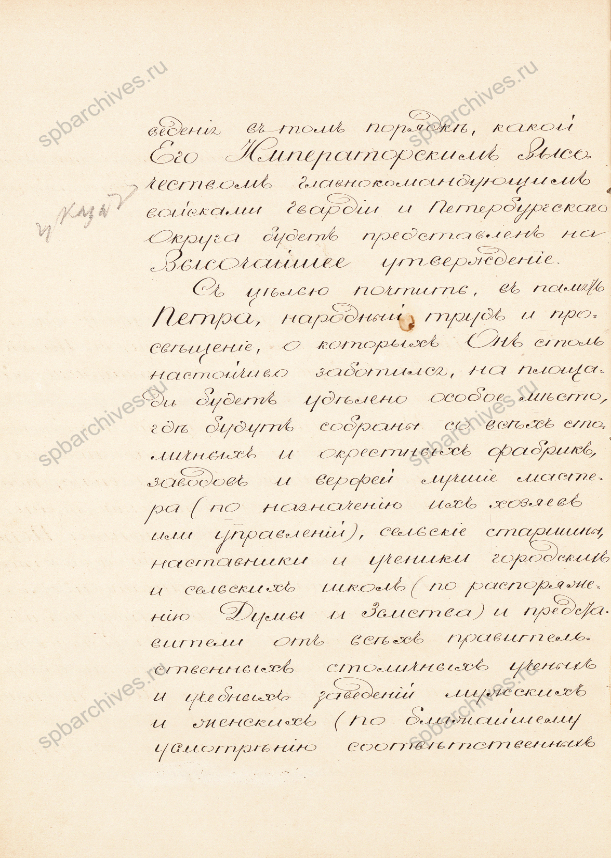 веденія въ томъ порядкѣ, какой
Его Императорскимъ Высо-
чествомъ главнокомандующимъ
войсками гвардіи и Петербургскаго
Округа будетъ представленъ на
Высочайшее утвержденіе.
Съ цѣлью почтить, въ память
Петра, народный трудъ и про-
свѣщеніе, о которыхъ Онъ столь
настойчиво заботился, на площа-
ди будетъ удѣлено особое мѣсто,
гдѣ будутъ собраны съ всѣхъ сто-
личныхъ и окрестныхъ фабрикъ,
заводовъ и верфей лучшіе масте-
ра (по назначенію ихъ хозяевъ
или управленій), сельскіе старшины,
наставники и ученики городскихъ
и сельскихъ школъ (по распоряже-
нію Думы и Земства) и предста-
вители отъ всѣхъ правитель-
ственныхъ столичныхъ ученыхъ
и учебныхъ заведеній мужскихъ
и женскихъ (по ближайшему
усмотрѣнію соотвѣтственныхъ
spbarchives.ru
spbarchives.ru
spbarchives.ru
spbarchives.ru
spbarchives.ru
spbarchives.ru